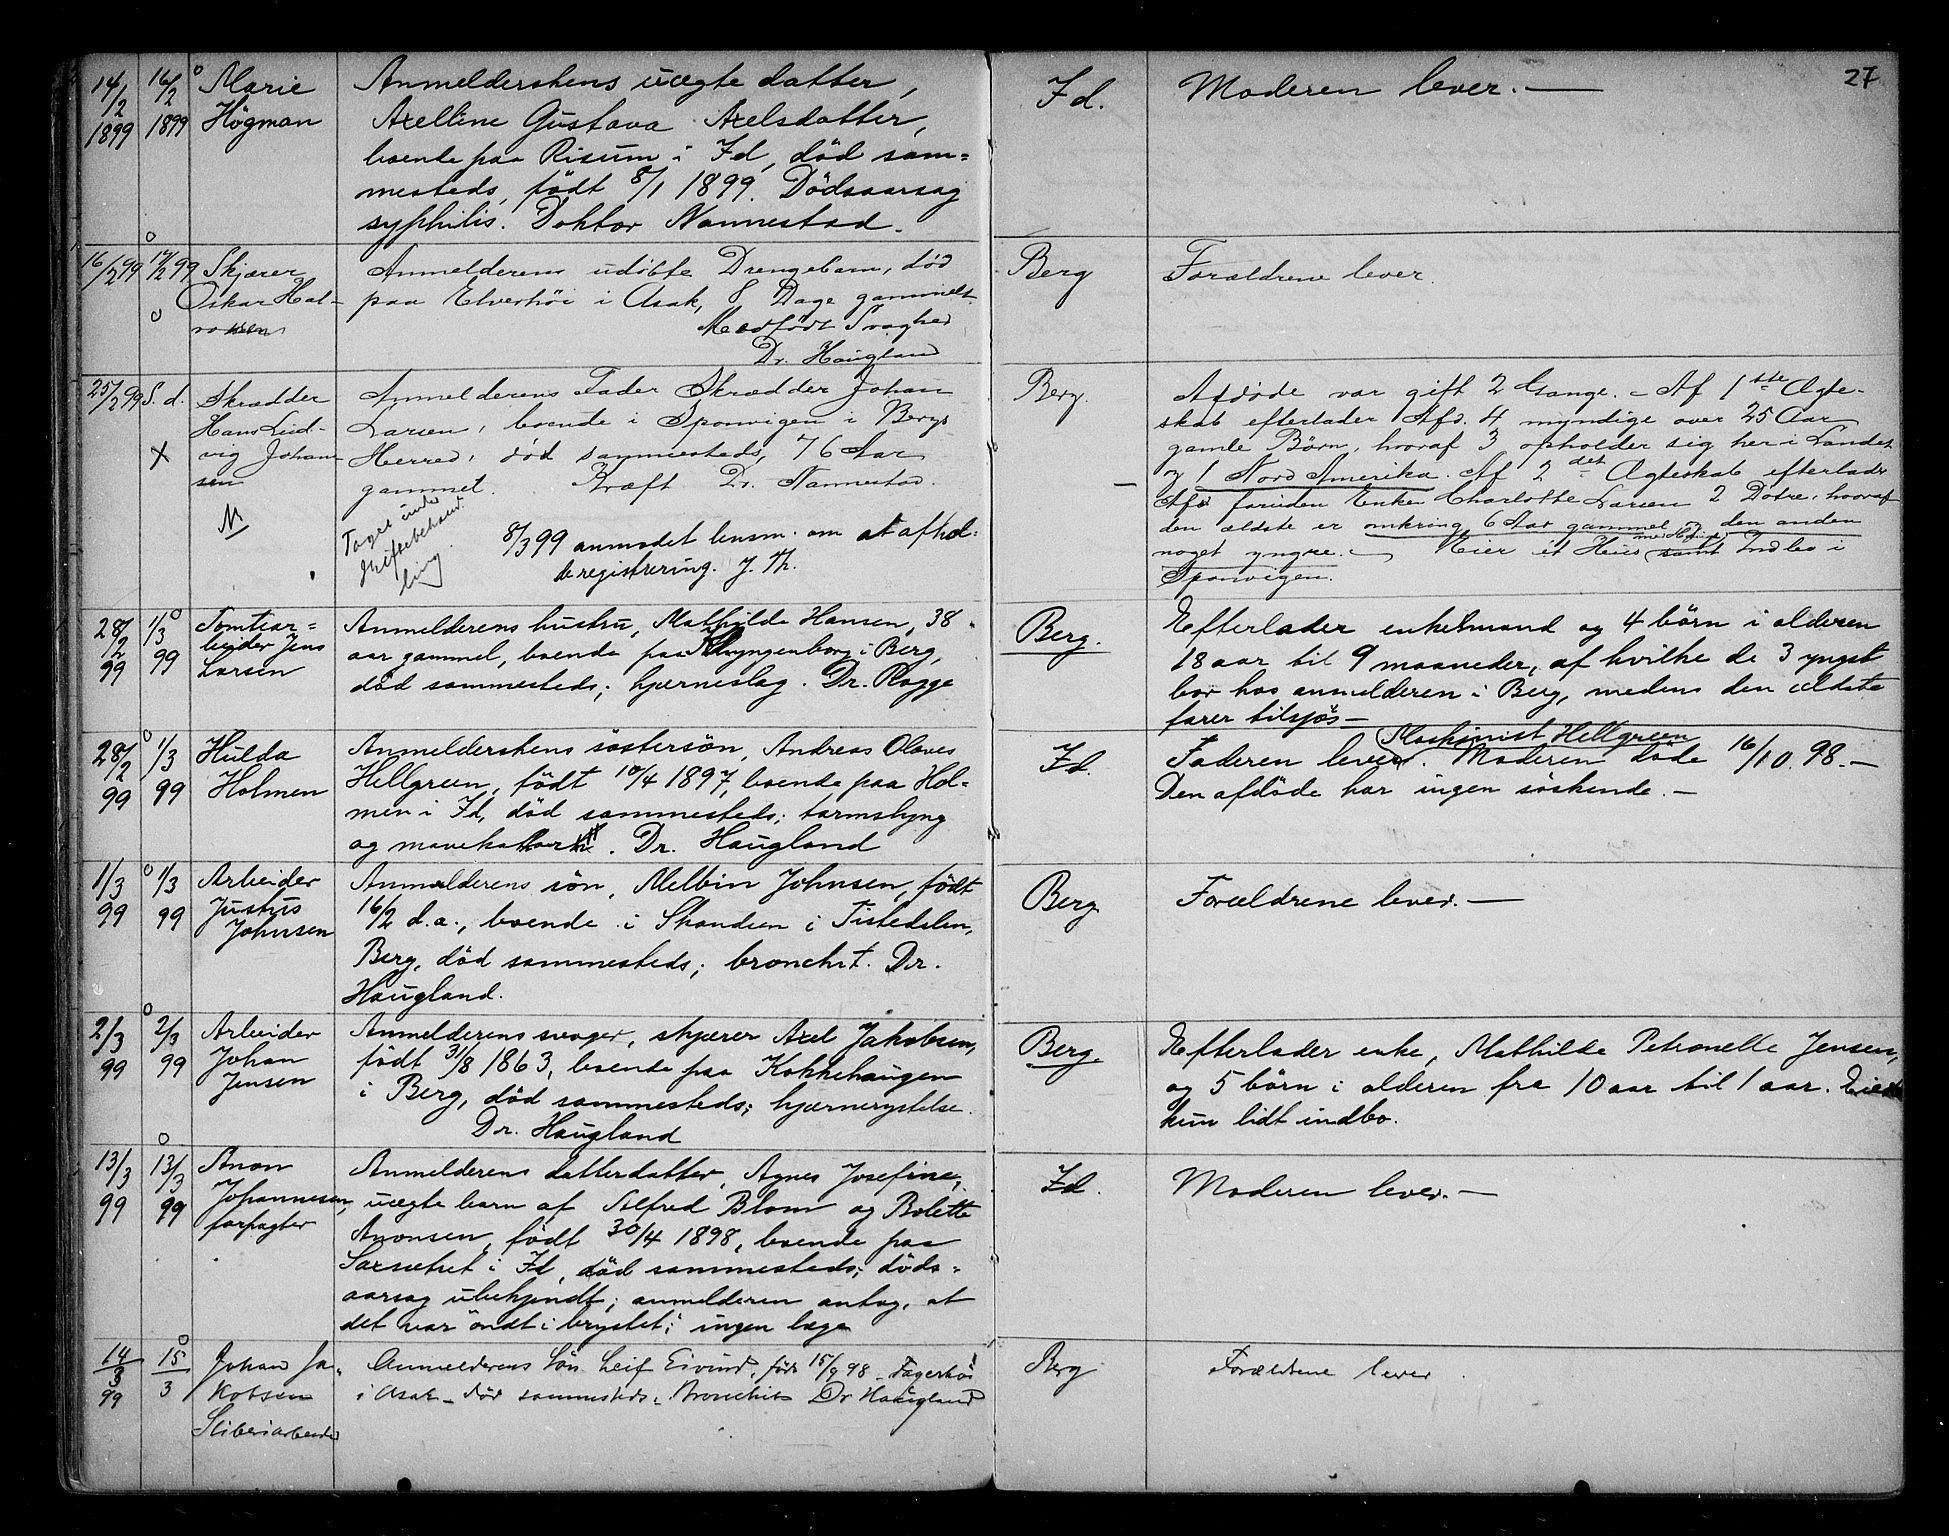 27
14/2 1899
16/2 1899
Marie
Högman
Anmelderskens uægte datter,
Axelline Gustava Axelsdatter,
boende paa Risum i Id, död sam=
mesteds, födt 8/1 1899. Dödsaarsag
syphilis. Doktor Nannestad.
Id.
Moderen lever. —
16/2 99
17/2 99
Skjærer
Oskar Hal-
Anmelderens udöbte Drengebarn, död
paa Elverhöi i Asak, 8 Dage gammelt
Medfödt Svaghed
Dr. Haugland
Berg
Forældrene lever.
25/2 99
S. d.
X
Skrædder
Hans Lud-
vig Johan-
sen
N
Anmelderens Fader Skrædder Johan
Larsen, boende i Sponvigen i Bergs
Herred, död sammesteds, 76 Aar
gammel. Kræft Dr. Nannestad.
Taget under
skiftebehand-
ling.
8/3 99 anmodet lensm. om at afhol-
de registrering. J. Th.
Berg.
Afdöde var gift 2 Gange. - Af 1ste Ægte-
skab efterlader Afd. 4 myndige over 25 Aar
gamle Börn, hvoraf 3 opholder sig her i Landet
og 1 Nord Amerika. Af 2det Ægteskab efterlader
Afd foruden Enken Charlotte Larsen 2 Dötre, hvoraf
den ældste er omkring 6 Aar gammel og den anden
noget yngre. - Eier et Huus samt Indbo i
Sponvigen.
28/2 99
1/3 99
Tomtear=
beider Jens
Larsen
Anmelderens hustru, Mathilde Hansen, 38
aar gammel, boende paa Klyngenborg i Berg,
död sammesteds; hjerneslag. Dr. Rogge
Berg.
Efterlader enkemand og 4 börn i alderen
18 aar til 9 maaneder, af hvilke de 3 yngst
bor hos anmelderen i Berg, medens den ældste
farer tilsjös —
28/2 99
1/3 99
Hulda
Holmen
Anmelderskens söstersön, Andreas Olaves
Hellgreen, födt 10/4 1897, boende paa Hol=
men i Id, död sammesteds; tarmslyng
og mavekatarrh. Dr. Haugland
Id.
Maskinist Hellgreen
Faderen lever. Moderen döde 16/10. 98. —
Den afdöde har ingen söskende. —
1/3 99
1/3 99
Arbeider
Justus
Johnsen
Anmelderens sön, Melbin Johnsen, födt
16/2 d.a., boende i Skandsen i Tistedalen,
Berg, död sammesteds; bronchit. Dr.
Haugland.
Berg
Forældrene lever. —
2/3 99
2/3 99
Arbeider
Johan
Jensen
Anmelderens svoger, skjærer Axel Jakobsen,
födt 31/8 1863, boende paa Kokkehaugen
i Berg, död sammesteds; hjernerystelse.
Dr. Haugland
Berg.
Efterlader enke, Mathilde Petronelle Jensen,
og 5 börn i alderen fra 10 aar til 1 aar. Eier
kun lidt indbo.
13/3 99
13/3 99
Anon
Johannesen,
forpagter
Anmelderens datterdatter, Agnes Josefine,
uægte barn af Alfred Blom og Bolette
Anonsen, födt 30/4 1898, boende paa
i Id, död sammesteds; döds-
aarsag ubekjendt; anmelderen antog, at
det var "ondt i brystet"; ingen læge
Id.
Moderen lever. —
14/3 99
15/3
Johan Ja-
kobsen
Sliberiarbeider
Anmelderens Sön Leif Eivind, födt 15/9 98 - Fagerhöi
i Asak - död sammesteds. Bronchit Dr Haugland
Berg
Forældrene lever